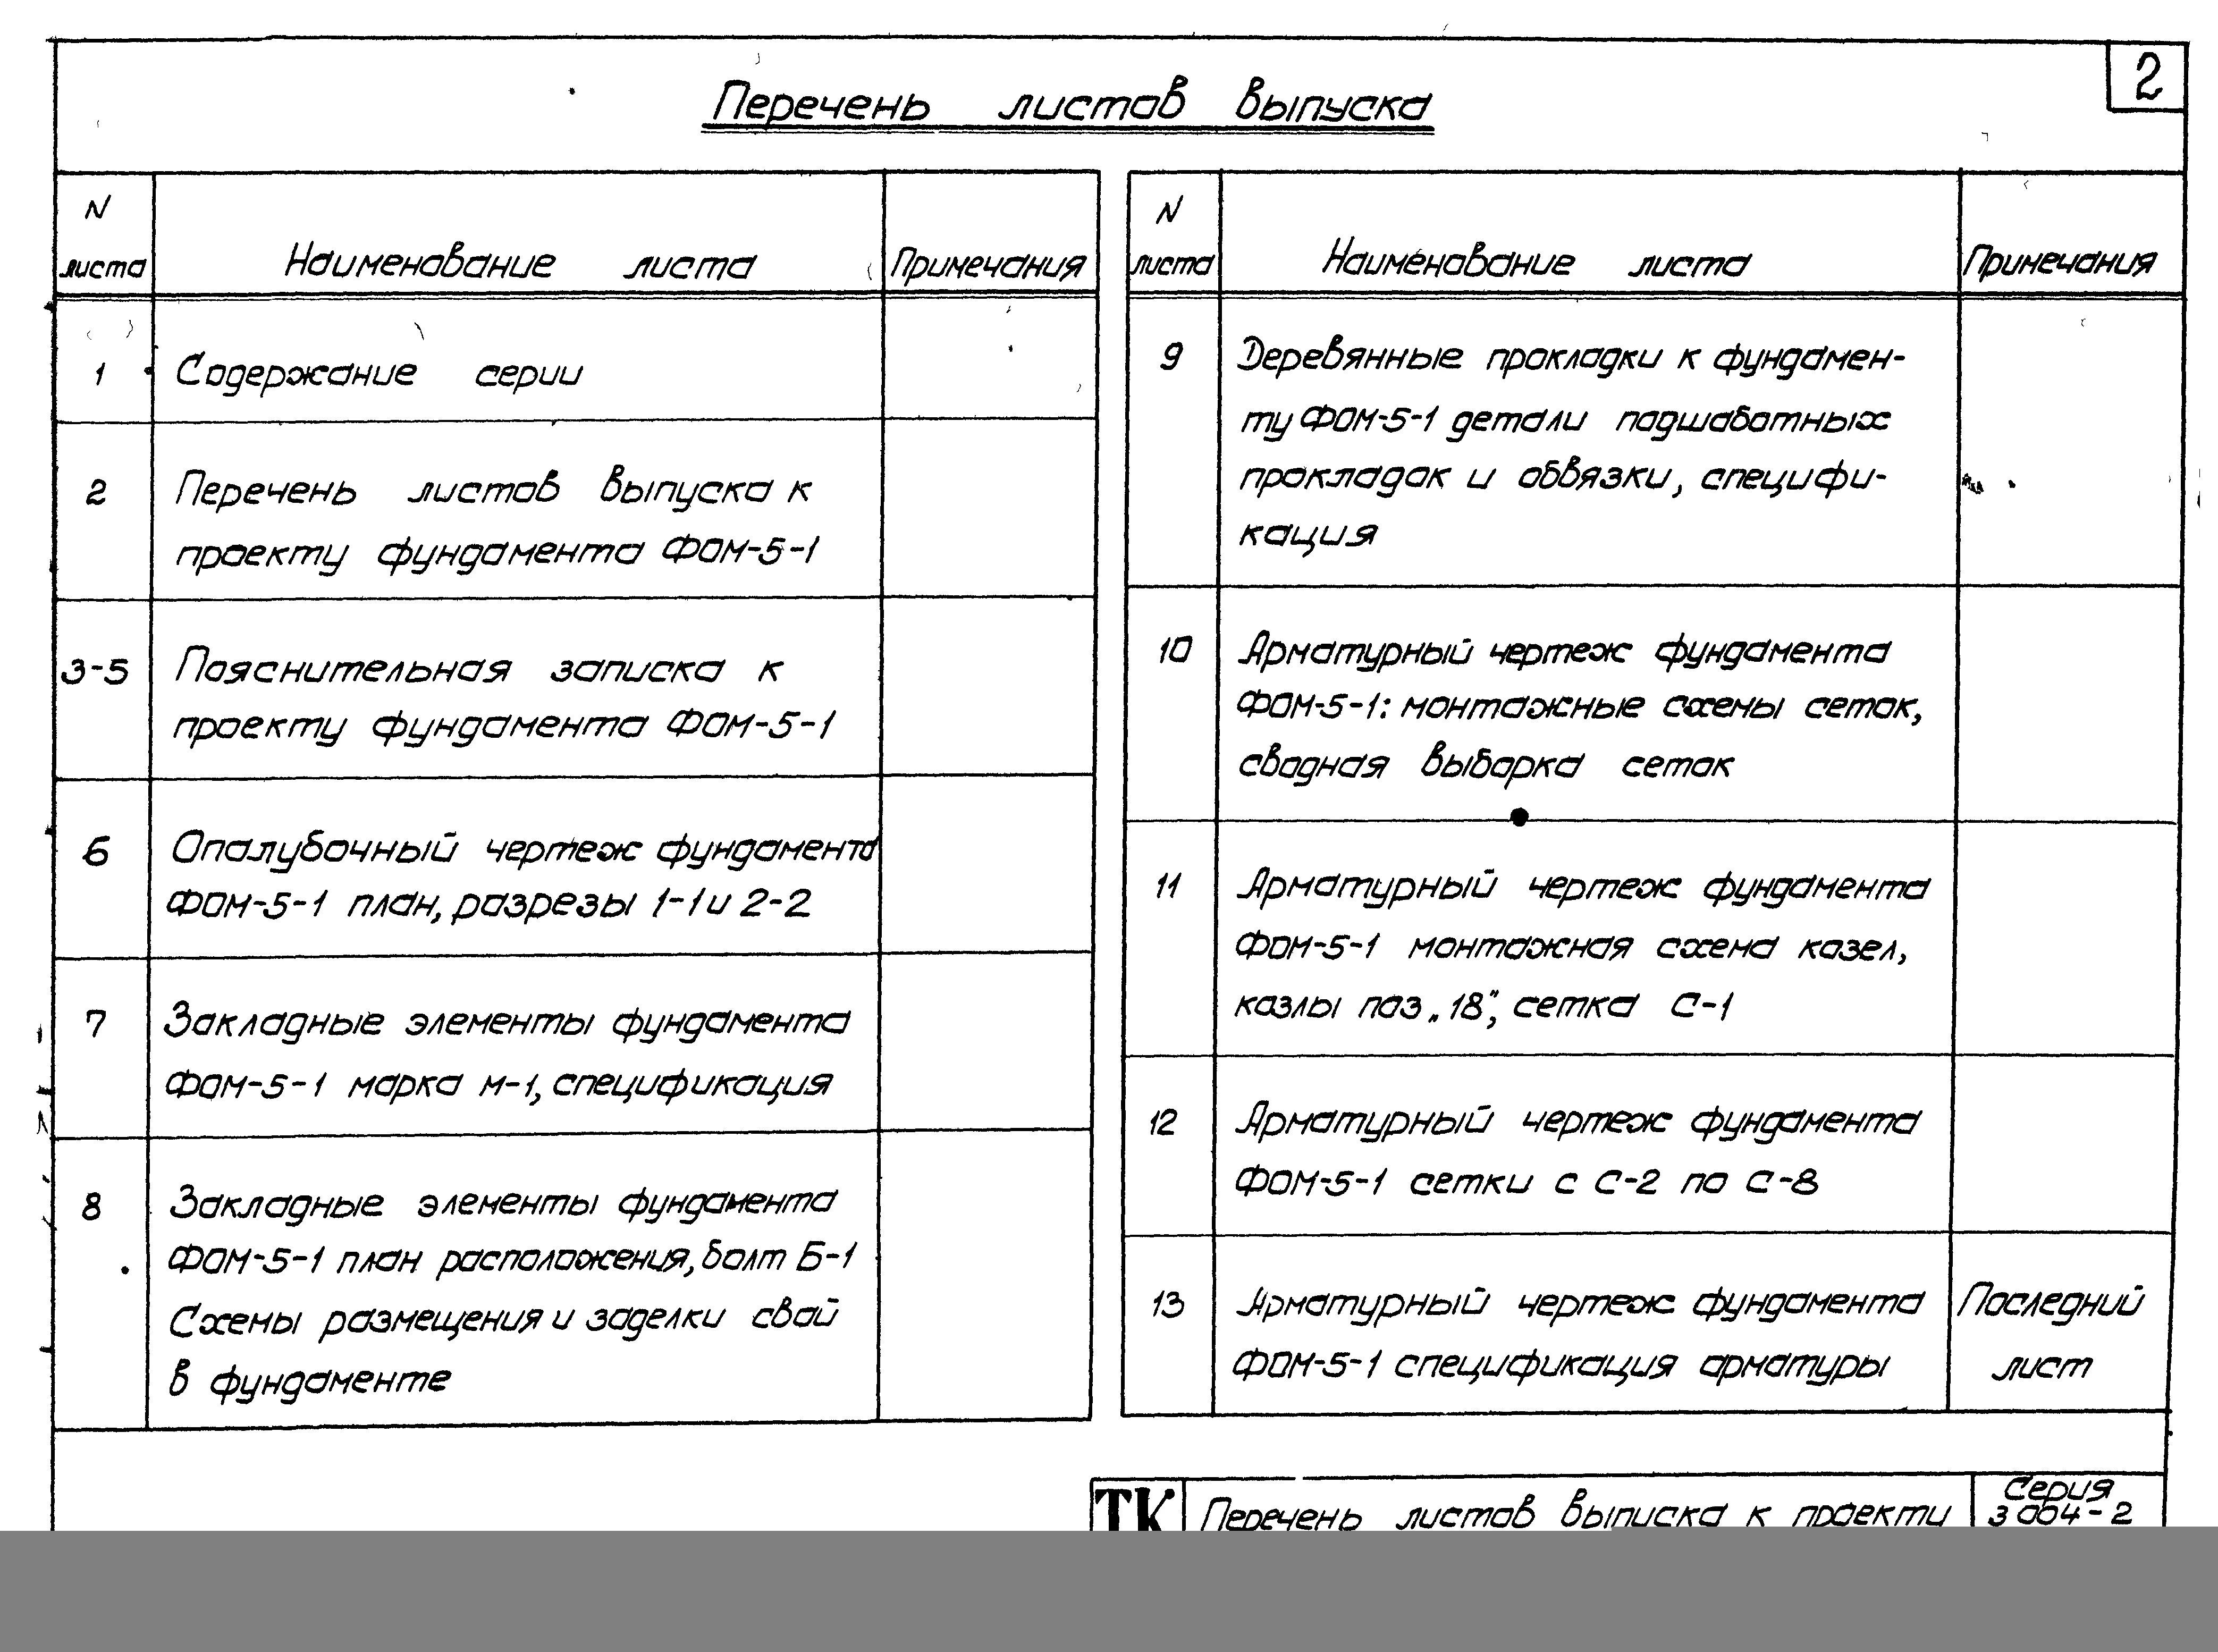 2
Перечень листов выпуска
N
листа
Наименование листа
Примечания
1
Содержание серии
2
Перечень листов выпуска к
проекту фундамента ФОМ-5-1
3-5
Пояснительная записка к
проекту фундамента ФОМ-5-1
6
Опалубочный чертеж фундамента
ФОМ-5-1 план, разрезы 1-1 и 2-2
7
Закладные элементы фундамента
ФОМ-5-1 марка М-1, спецификация
8
Закладные элементы фундамента
ФОМ-5-1 план расположения, болт Б-1
Схемы размещения и заделки свай
в фундаменте
N
листа
Наименование листа
Примечания
9
Деревянные прокладки к фундамен-
ту ФОМ-5-1 детали подшаботных
прокладок и обвязки, специфи-
кация
10
Арматурный чертеж фундамента
ФОМ-5-1: монтажные схемы сеток,
сводная выборка сеток
11
Арматурный чертеж фундамента
ФОМ-5-1 монтажная схема козел,
козлы поз „18”, сетка С-1
12
Арматурный чертеж фундамента
ФОМ-5-1 сетки с С-2 по С-8
13
Арматурный чертеж фундамента
ФОМ-5-1 спецификация арматуры
Последний
лист
ТК
Перечень листов выпуска к проекту
Серия
3 004-2